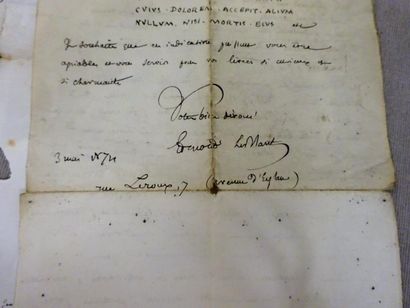 CVIVS · DOLOREM · ACCEPIT · ALIVM
NVLLVM, NISI · MORTIS · EIVS
Je souhaite que ces indications puissent vous être
agréables et vous servir pour vos livres si curieux et
si charmants
Votre bien dévoué
Edmond Le Blant
3 mai 1874
rue Leroux, 7 (avenue d'Eylau)